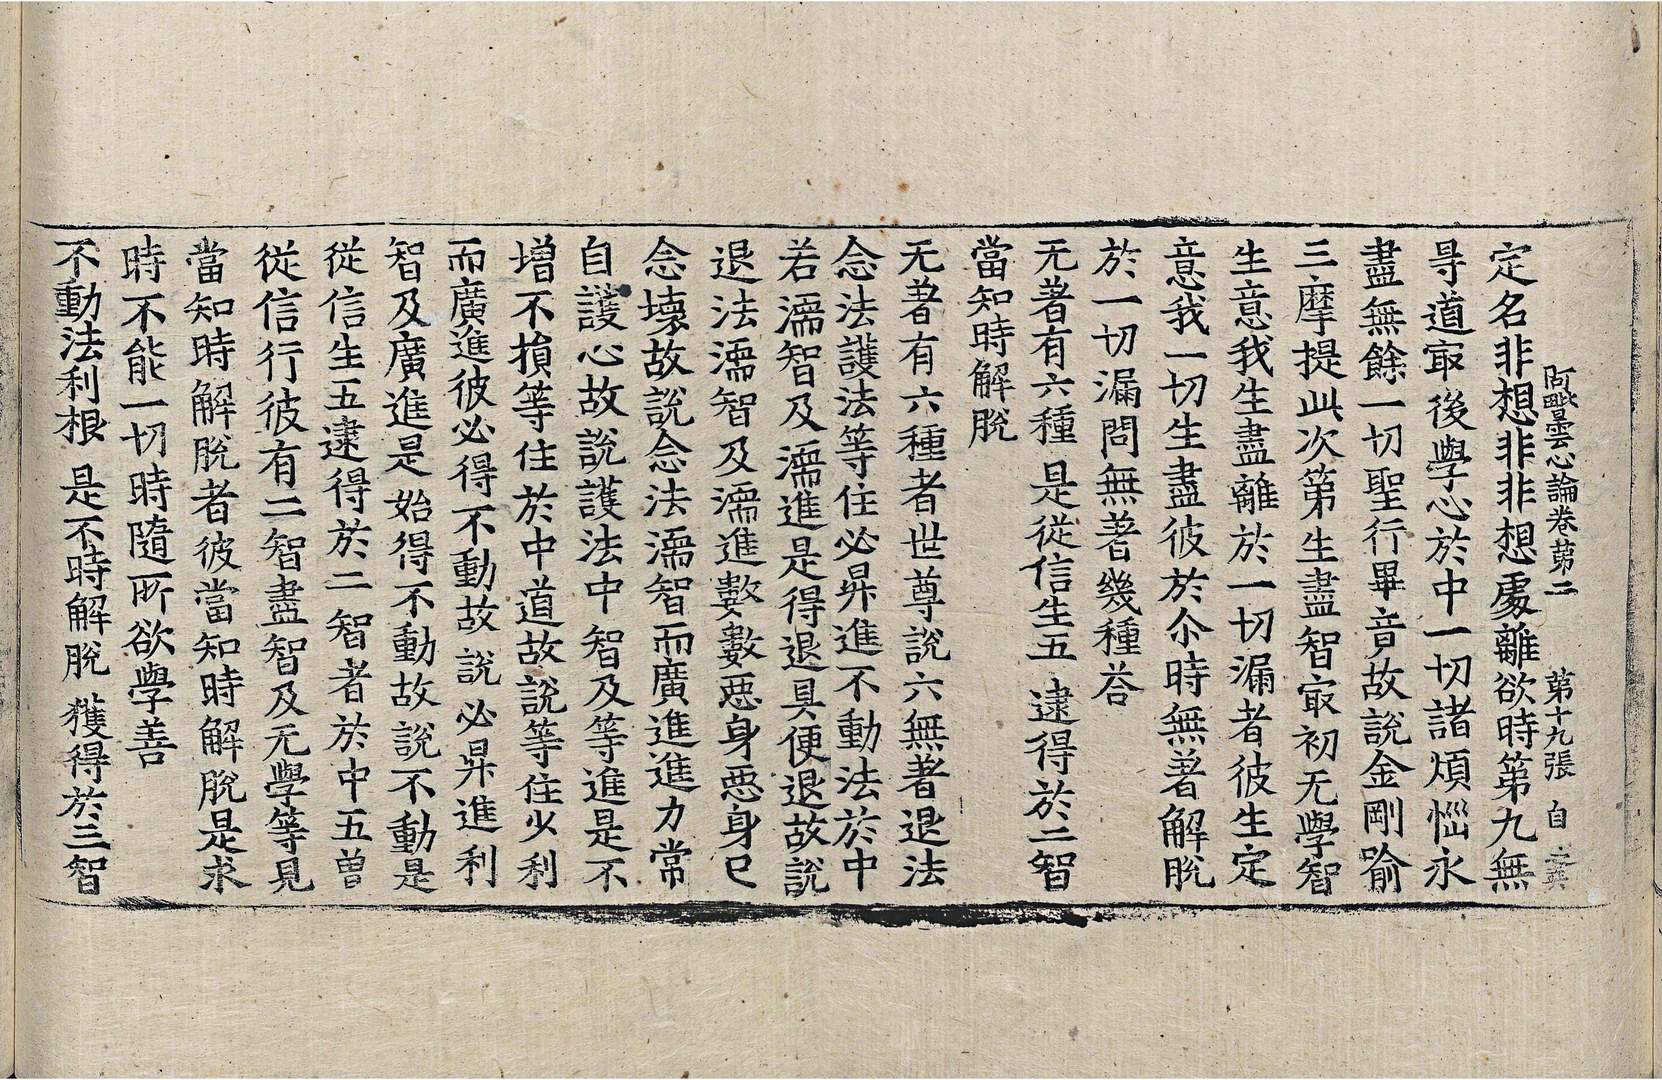 阿毗曇心論卷第二 第十九張 自
定名非想非非想處離欲時第九無
㝵道㝡後學心於中一切諸煩惱永
盡無餘一切聖行畢竟故說金剛喻
三摩提此次第生盡智㝡初无學智
生意我生盡離於一切漏者彼生定
意我一切生盡彼於尒時無著解脫
於一切漏問無著幾種荅
无著有六種 是從信生五 逮得於二智
當知時解脫
无著有六種者世尊說六無著退法
念法護法等住必昇進不動法於中
若濡智及濡進是得退具便退故說
退法濡智及濡進數數惡身惡身已
念壞故說念法濡智而廣進進力常
自護心故說護法中智及等進是不
增不損等住於中道故說等住少利
而廣進彼必得不動故說必昇進利
智及廣進是始得不動故說不動是
從信生五逮得於二智者於中五曾
從信行彼有二智盡智及无學等見
當知時解脫者彼當知時解脫是求
時不能一切時隨所欲學善
不動法利根 是不時解脫 獲得於三智